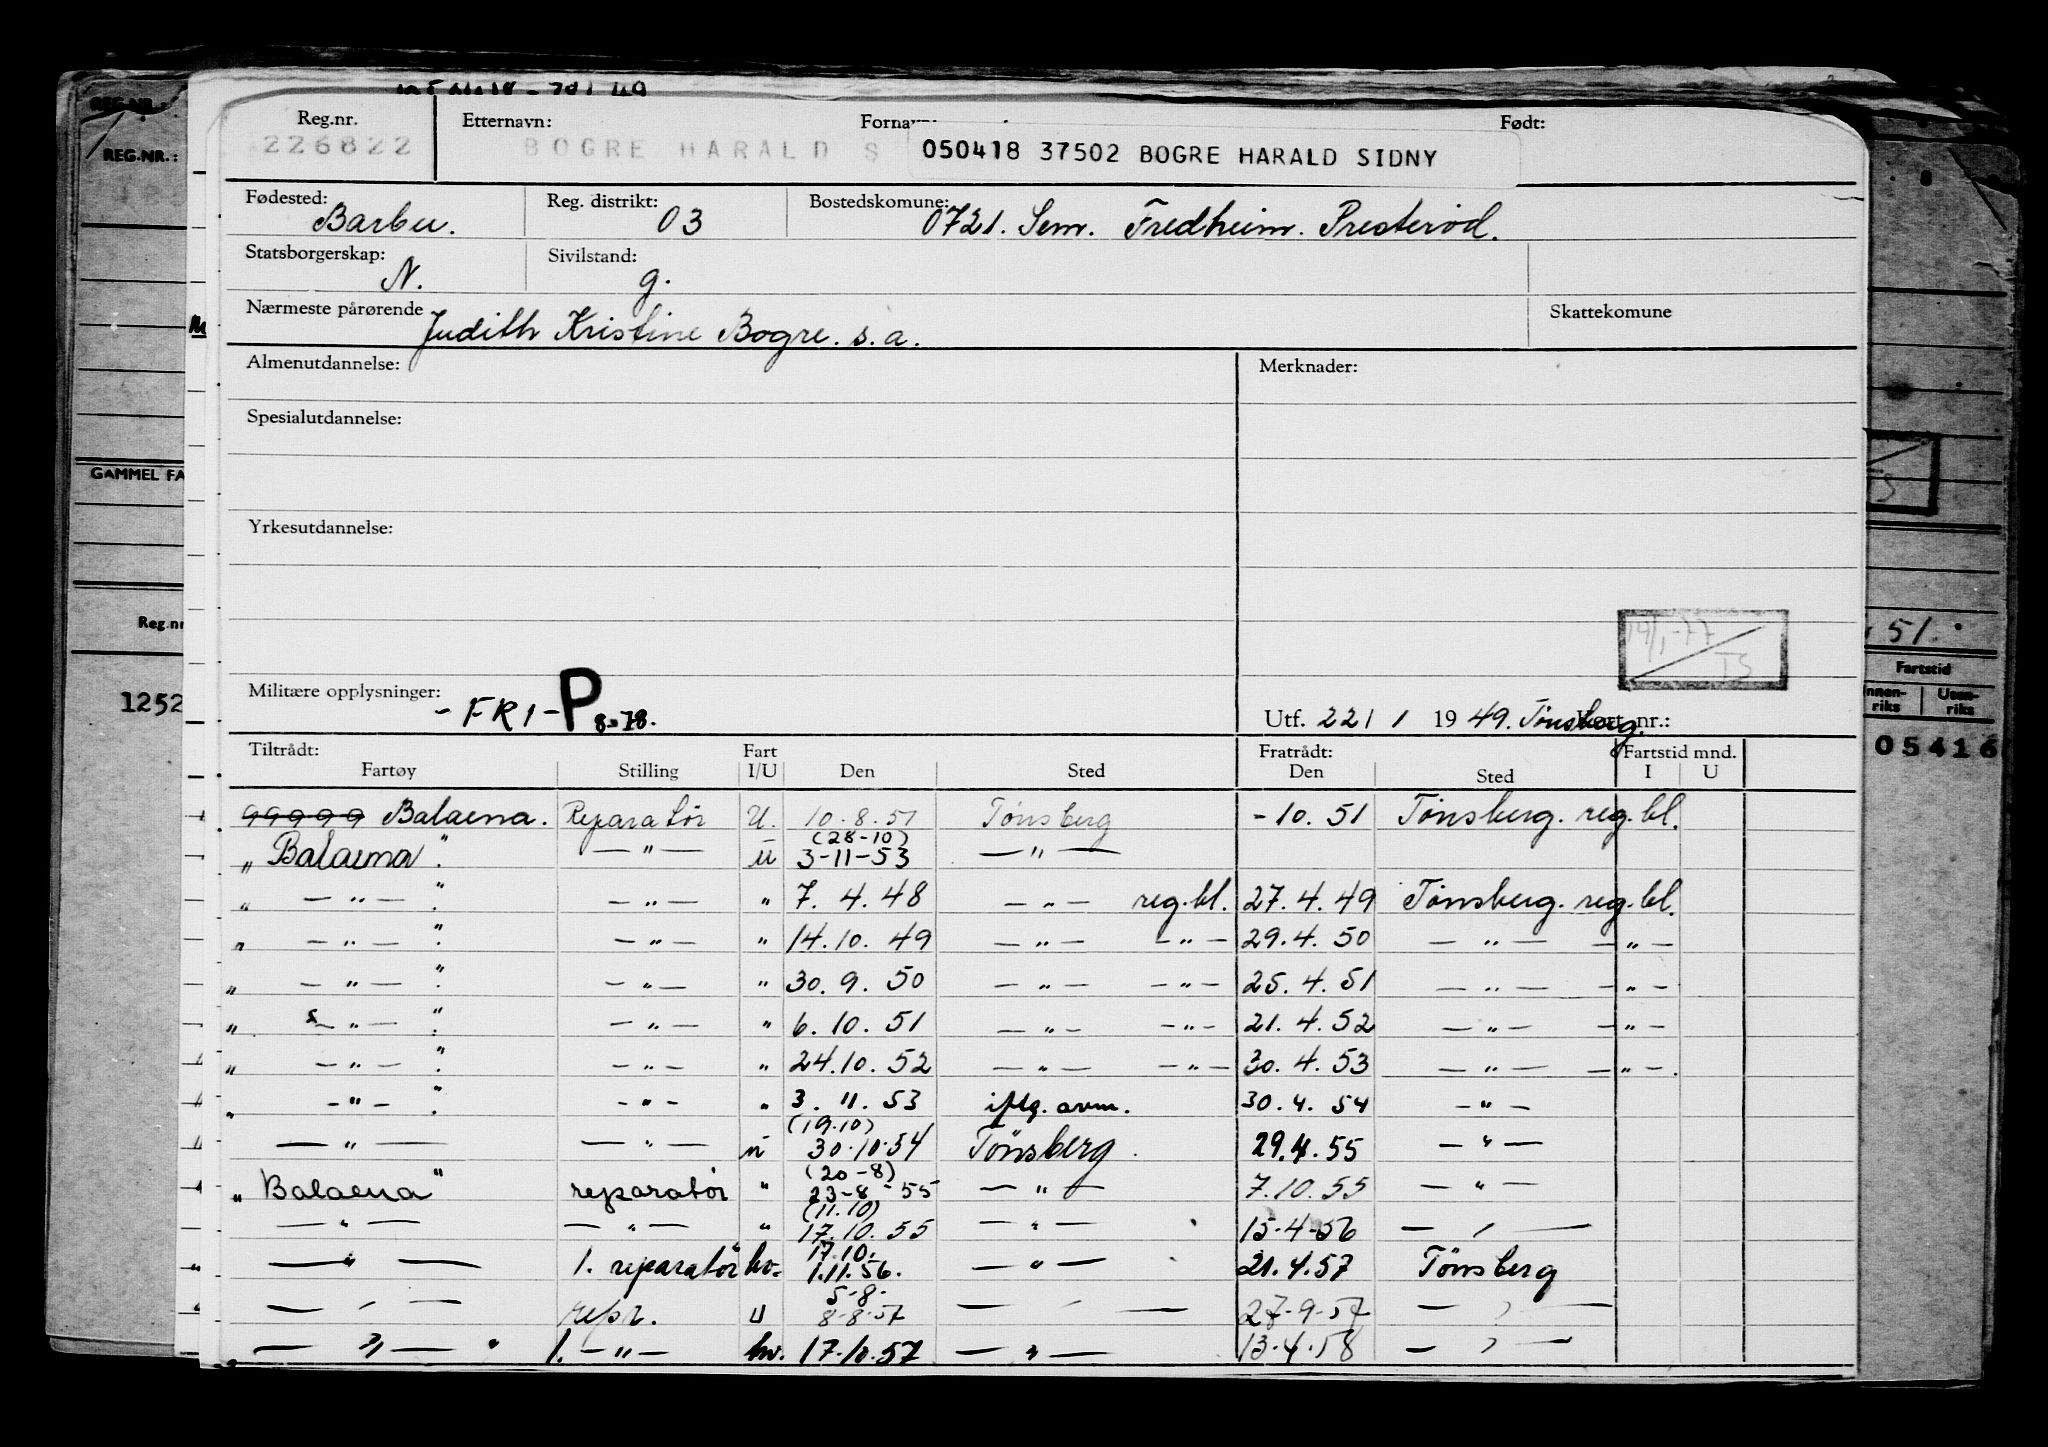 REG.NR.:
REG.NR.:
GAMMEL FA
Reg.nr
1252
Reg.nr. Etternavn: Fornavn: Født:
226822 BOGRE HARALD S 050418 37502 BOGRE HARALD SIDNY
Fødested: Barbu. Reg. distrikt: 03 Bostedskomune: 0721. Sem. Fredheim. Presterød.
Statsborgerskap: N. Sivilstand: g.
Nærmeste pårørende Judith Kristine Bogre. s.a. Skattekomune
Almenutdannelse: Merknader:
Spesialutdannelse:
Yrkesutdannelse:
14/1-77
TS
Militære opplysninger: -FRI- P 8-78. Utf. 22/1 1949. Tønsberg. Kort nr.:
Tiltrådt: Fart Fratrådt: Fartstid mnd.
Fartøy Stilling I/U Den Sted Den Sted I U
99999 Balaena. Reparatør U. 10.8.51 Tønsberg -10.51 Tønsberg. reg.bl.
(28-10)
" Balaena". — " — U 3-11-53 — " —
" — " — " " — " — " 7. 4. 48 — " — reg.bl. 27.4.49 Tønsberg. reg.bl.
" — " — " — " — " 14.10. 49 — " — — " — 29.4. 50 — " — — " —
" — " — " — " — " 30. 9. 50 — " — — " — 25. 4. 51 — " — — " —
" — " — " — " — " 6. 10. 51 — " — — " — 21. 4. 52 — " — — " —
" — " — " — " — " 24.10. 52 — " — — " — 30. 4. 53 — " — — " —.
" — " — " — " — " 3. 11. 53 iflg. avm. 30.4. 54 — " —
(19.10)
— " — — " — u 30.10.54 Tønsberg. 29.4.55 — " —
(20-8)
" Balaena" reparatør " 23-8-55 — " — 7.10.55 — " —
(11.10)
— " — — " — " 17.10.55 — " — 15-4-56 — " —
17.10.
" — " — 1. reparatør hv. 1.11.56. — " — 21.4.57 Tønsberg
5-8-
" — " — repr. U 8-8-57 — " — 27-9-57 — " —
— " — " 1. — " — hv. 17.10.57 — " — 13.4.58 — " —
51.
Fartstid
Innen-riks Uten-riks
05416